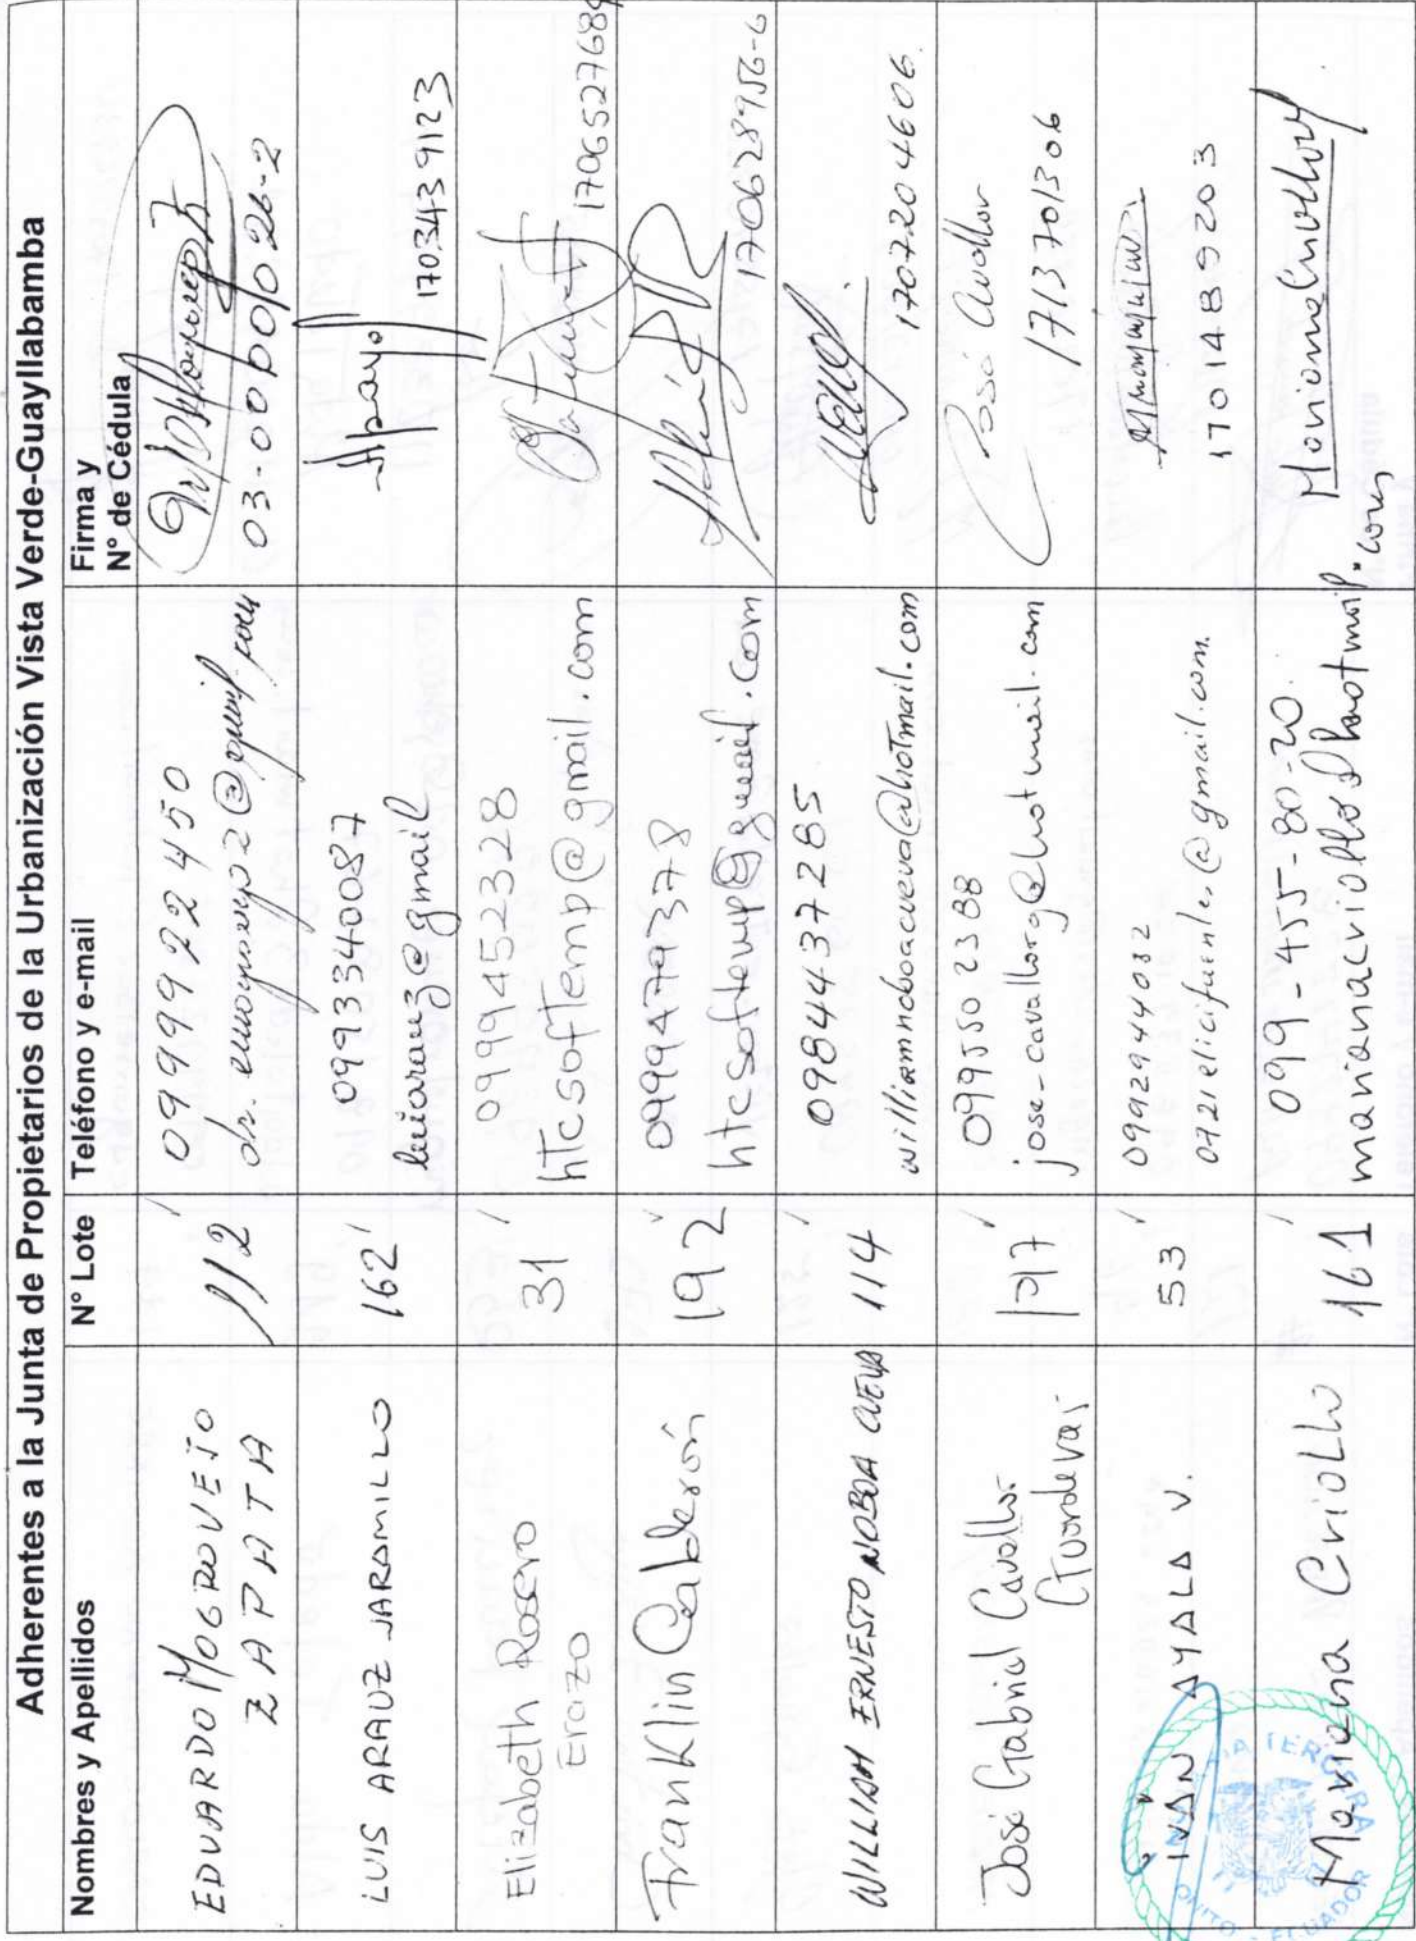 Adherentes a la Junta de Propietarios de la Urbanización Vista Verde-Guayllabamba
Nombres y Apellidos
N° Lote
Teléfono y e-mail
Firma y
N° de Cédula
EDUARDO MOGROVEJO
ZAPATA
112
0999922450
03-0000026-2
LUIS ARAUZ JARAMILLO
162
0993340087
luisarauz@gmail
1703439123
Elizabeth Rosero
Erazo
31
0999452328
htcsoftemp@gmail.com
170652768
Franklin Calderón
192
0999479378
htcsoftemp@gmail.com
170628956-6
WILLIAM ERNESTO NOBOA CUEVA
114
0984437285
williamnoboacueva@hotmail.com
1707204606
José Gabriel Cavallos
0995502388
José Cavallos
1713701306
IVÁN AYALA V.
53
0992944032
0721elicifuentes@gmail.com.
1701489203
Mariana Criollo
161
099-455-80-20
NOTARIA TERCERA
QUITO - ECUADOR